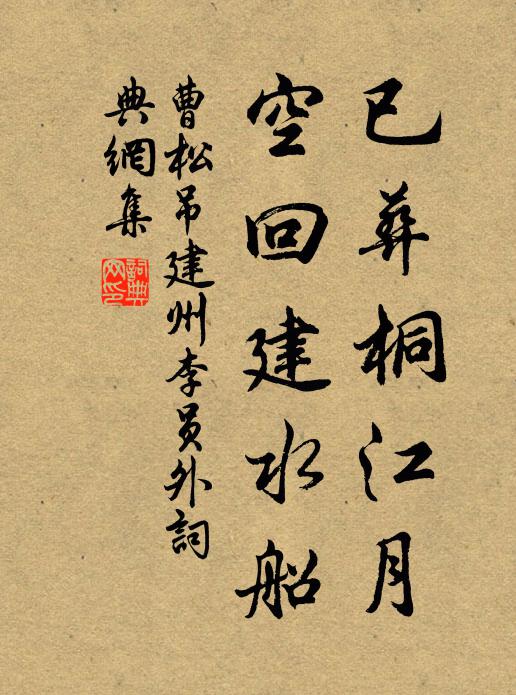 已葬桐江月
空回建水船
曹松吊建州李員外詞
典網集
詞典
网印